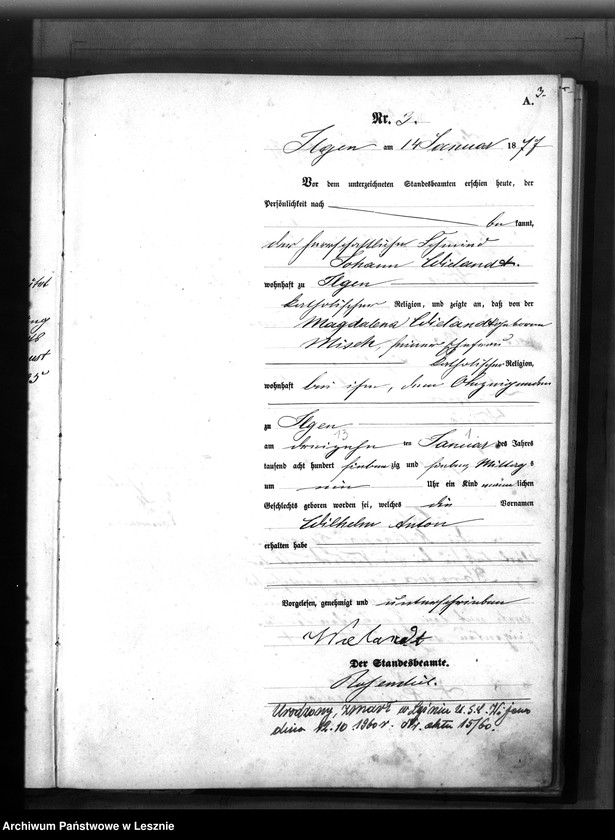 3.
A.
Nr. 3.
Ilgen am 14 Januar 1877
Vor dem unterzeichneten Standesbeamten erschien heute, der
Persönlichkeit nach
be kannt,
der herrschaftliche Schmied
Johann Wielandt.
wohnhaft zu Ilgen
katholischer Religion, und zeigte an, daß von der
Magdalena Wielandt geborenen
Misch, seiner Ehefrau
katholischer Religion,
wohnhaft bei ihm, dem Anzeigenden
zu Ilgen
13 1
am dreizehn ten Januar des Jahres
tausend acht hundert sieben zig und sieben Mittags
um ein Uhr ein Kind männlichen
Geschlechts geboren worden sei, welches die Vornamen
Wilhelm Anton
erhalten habe
Vorgelesen, genehmigt und unterschrieben
Wielandt
Der Standesbeamte.
Urodzony, zmarł w U.S.C.
dnia 12.10 1960 r. Nr. aktu 15/60.
Archiwum Państwowe w Lesznie